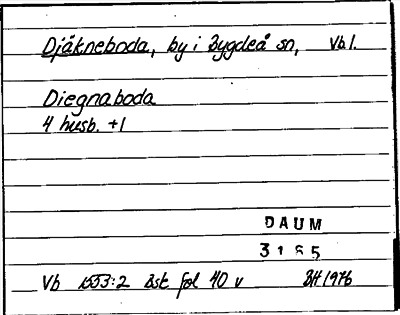 Djäkneboda, by i Bygdeå sn, Vb.
Diegnaboda
4 husb. +1
DAUM
3165
Vb 1553:2 Bst fol 40 v BH 1976